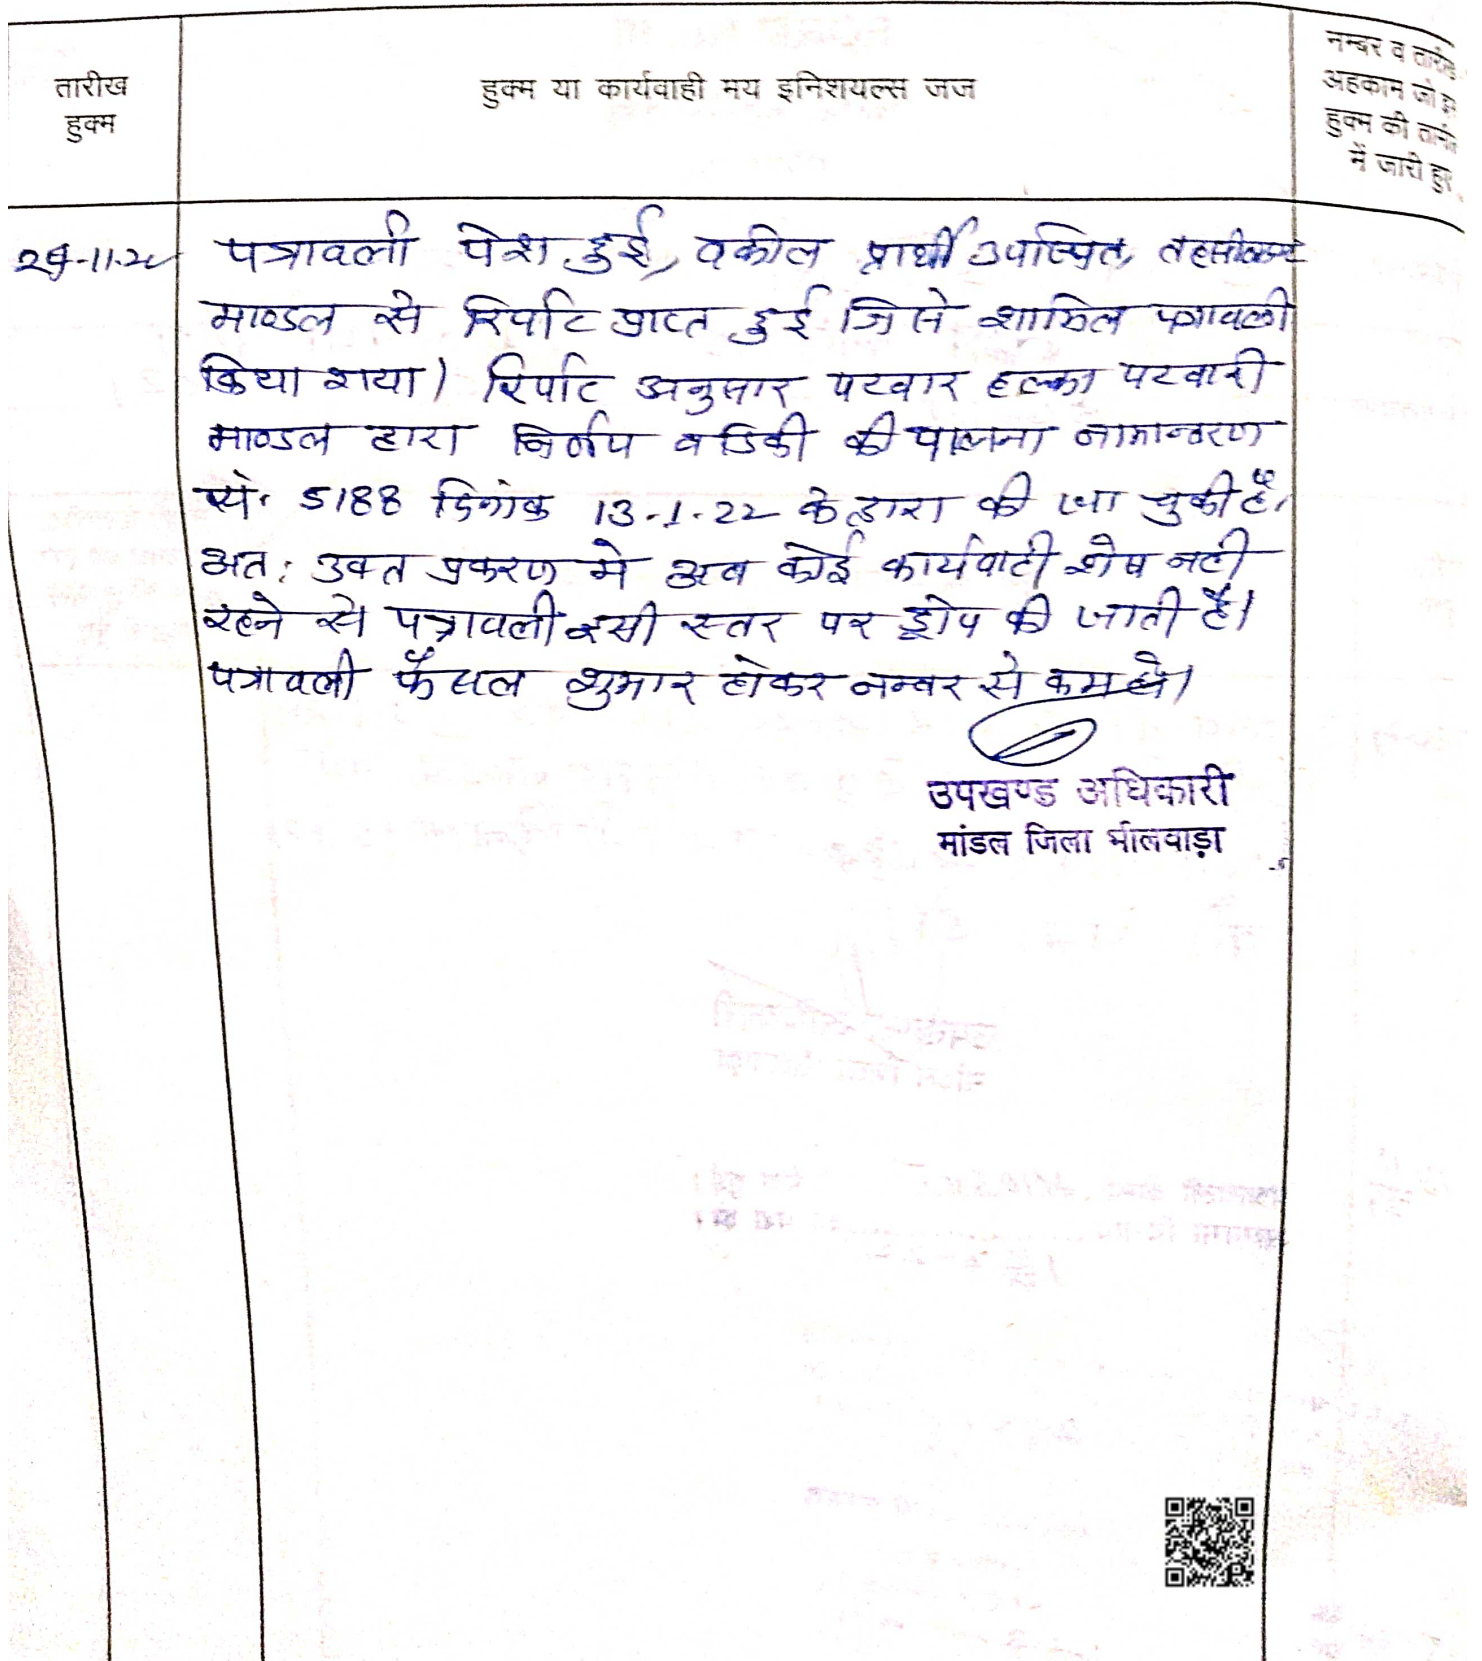 तारीख
हुक्म
हुक्म या कार्यवाही मय इनिशयल्स जज
नम्बर व तारीख
अहकाम जो इस
हुक्म की तारीख
में जारी हुए
पत्रावली पेश हुई, वकील प्रार्थी उपस्थित, तहसीलदार
माण्डल से रिर्पोट प्राप्त हुई जिसे शामिल पत्रावली
किया गया। रिर्पोट अनुसार पटवार हल्का पटवारी
माण्डल द्वारा निर्णय व डिक्री की पालना नामान्तरण
सं. 5188 दिनांक 13-1-22 के द्वारा की जा चुकी है,
अत: उक्त प्रकरण मे अब कोई कार्यवाही शेष नही
रहने से पत्रावली इसी स्तर पर ड्रोप की जाती है।
पत्रावली फैसल शुमार होकर नम्बर से कम हो।
उपखण्ड अधिकारी
मांडल जिला भीलवाड़ा